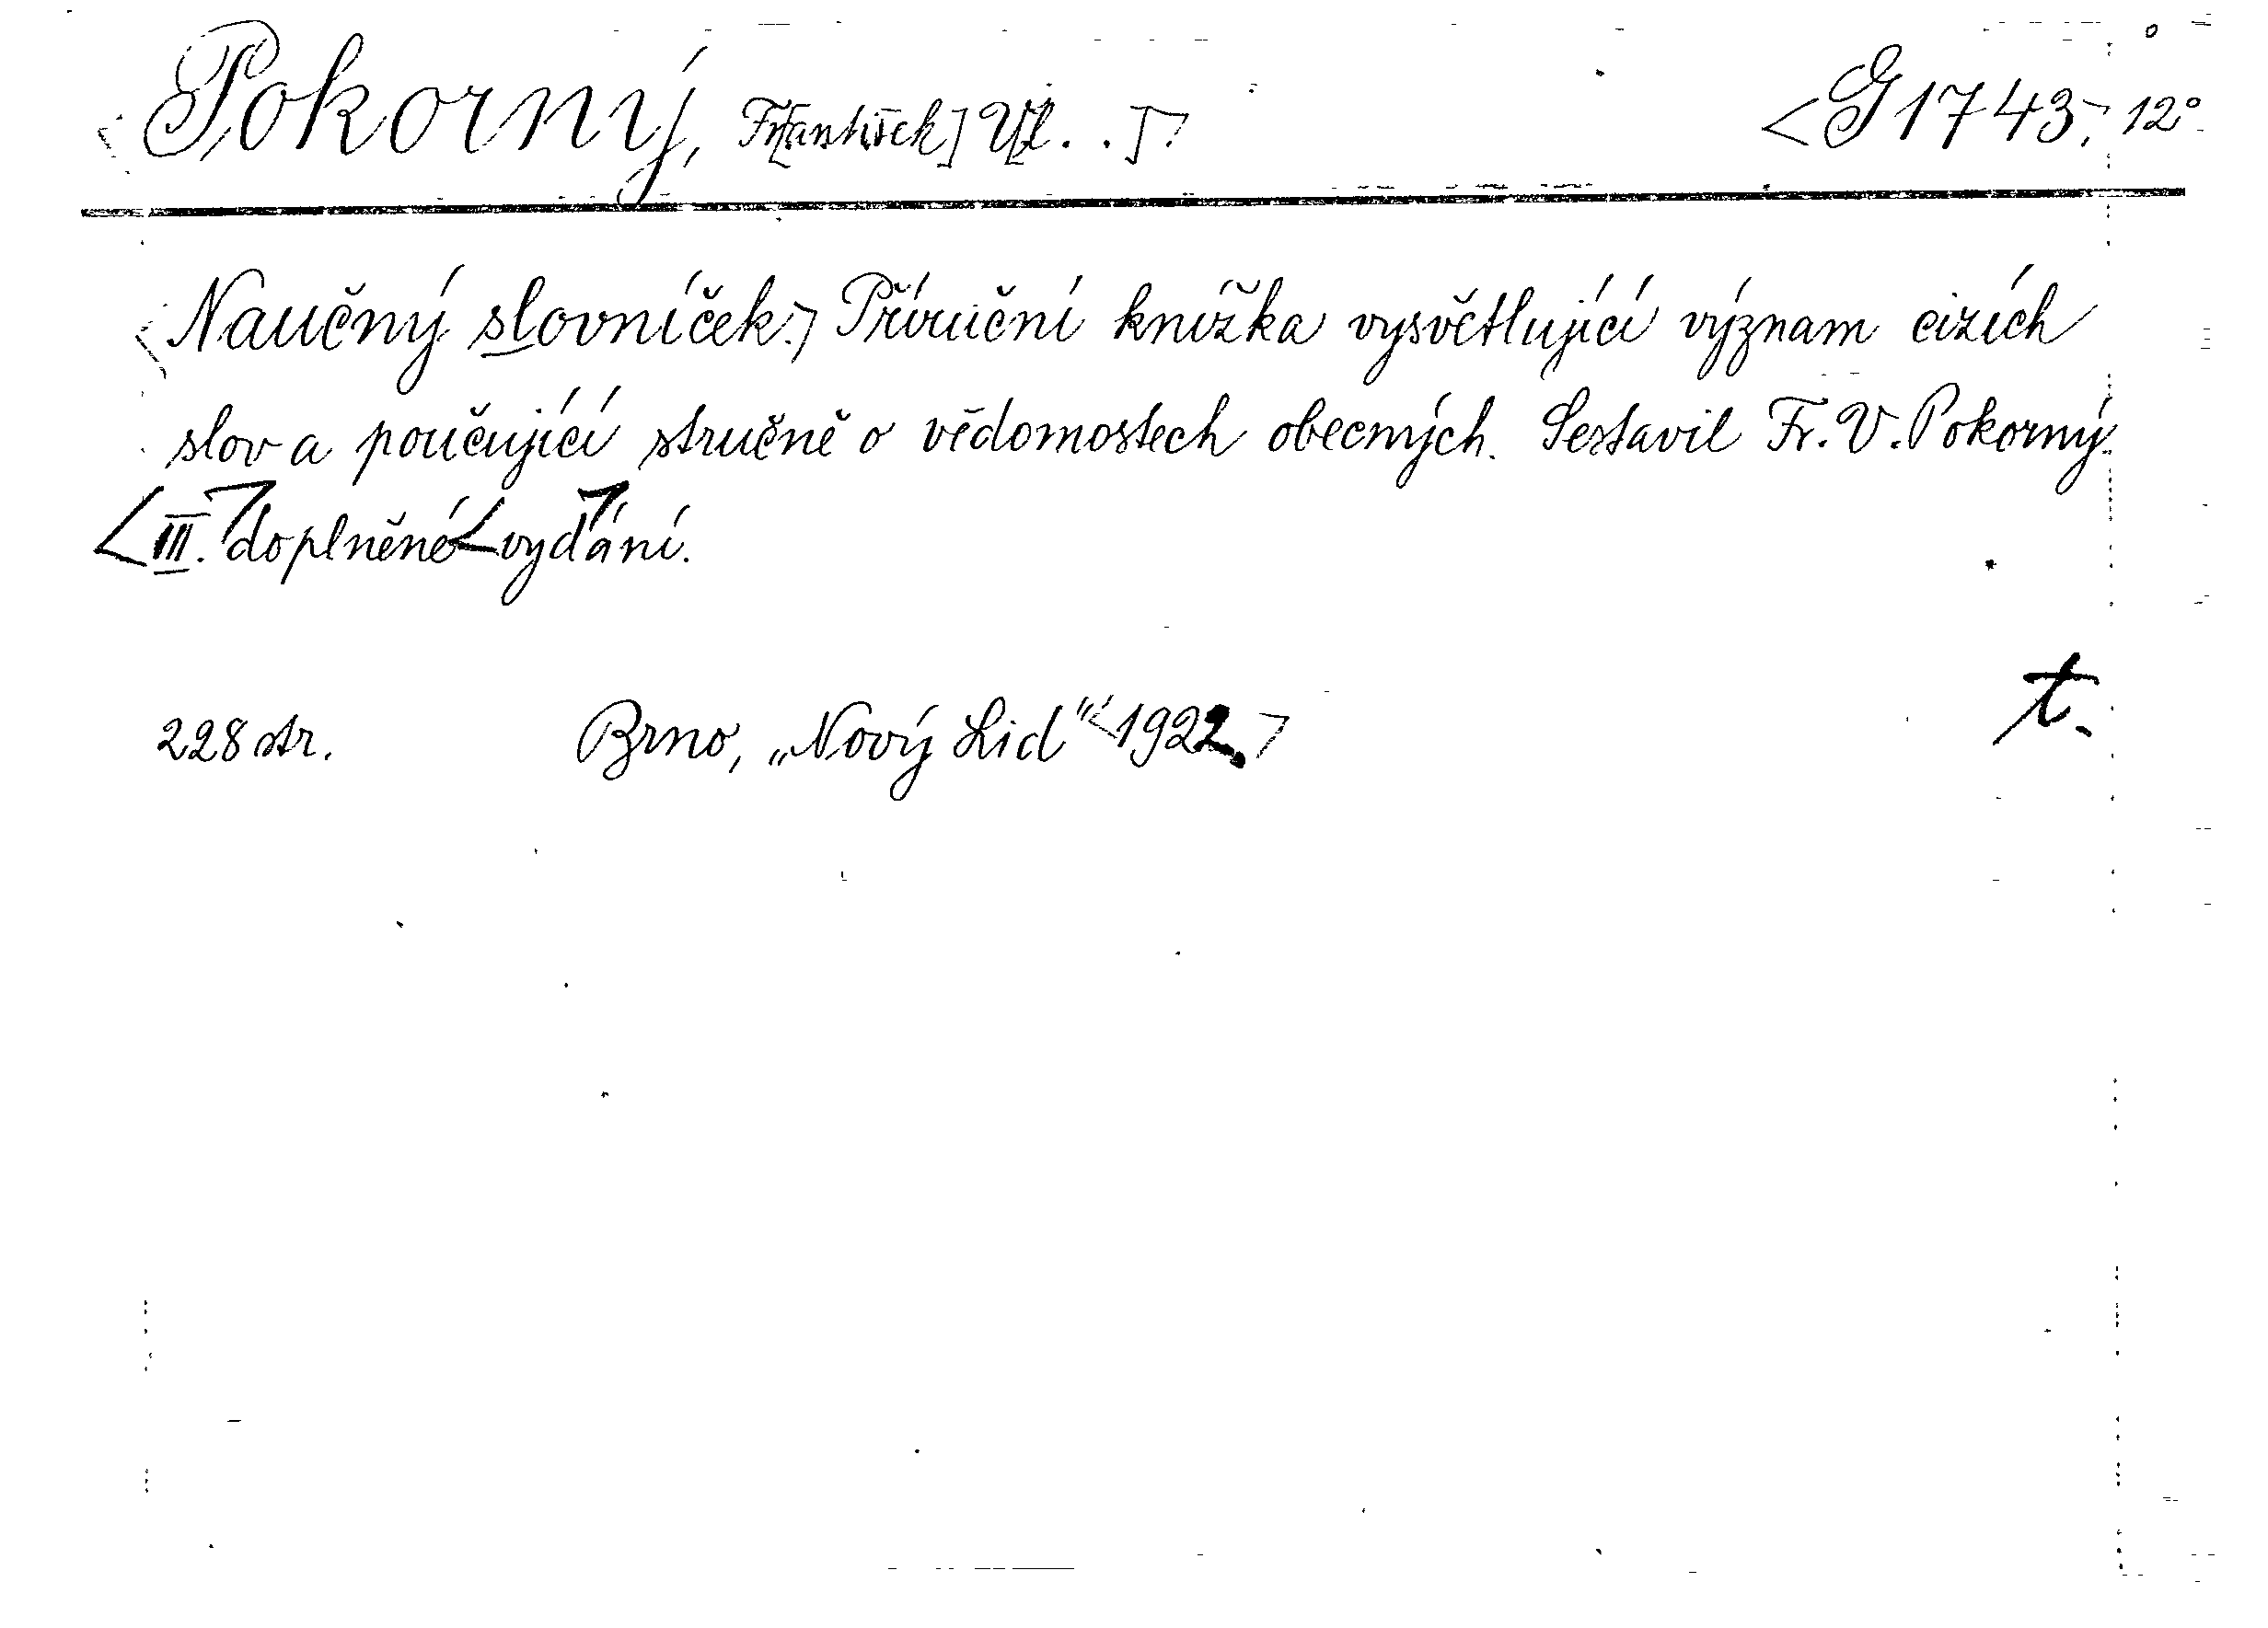 <Pokorný, Fr[antišek] V[l. . ]>
<G 1743.> 12°
<Naučný slovníček.> Příruční knížka vysvětlující význam cizích
slov a poučující stručně o vědomostech obecných. Sestavil Fr. V. Pokorný.
<III.> doplněné <vyd>ání.
t.
228 str. Brno, „Nový Lid" <1922.>